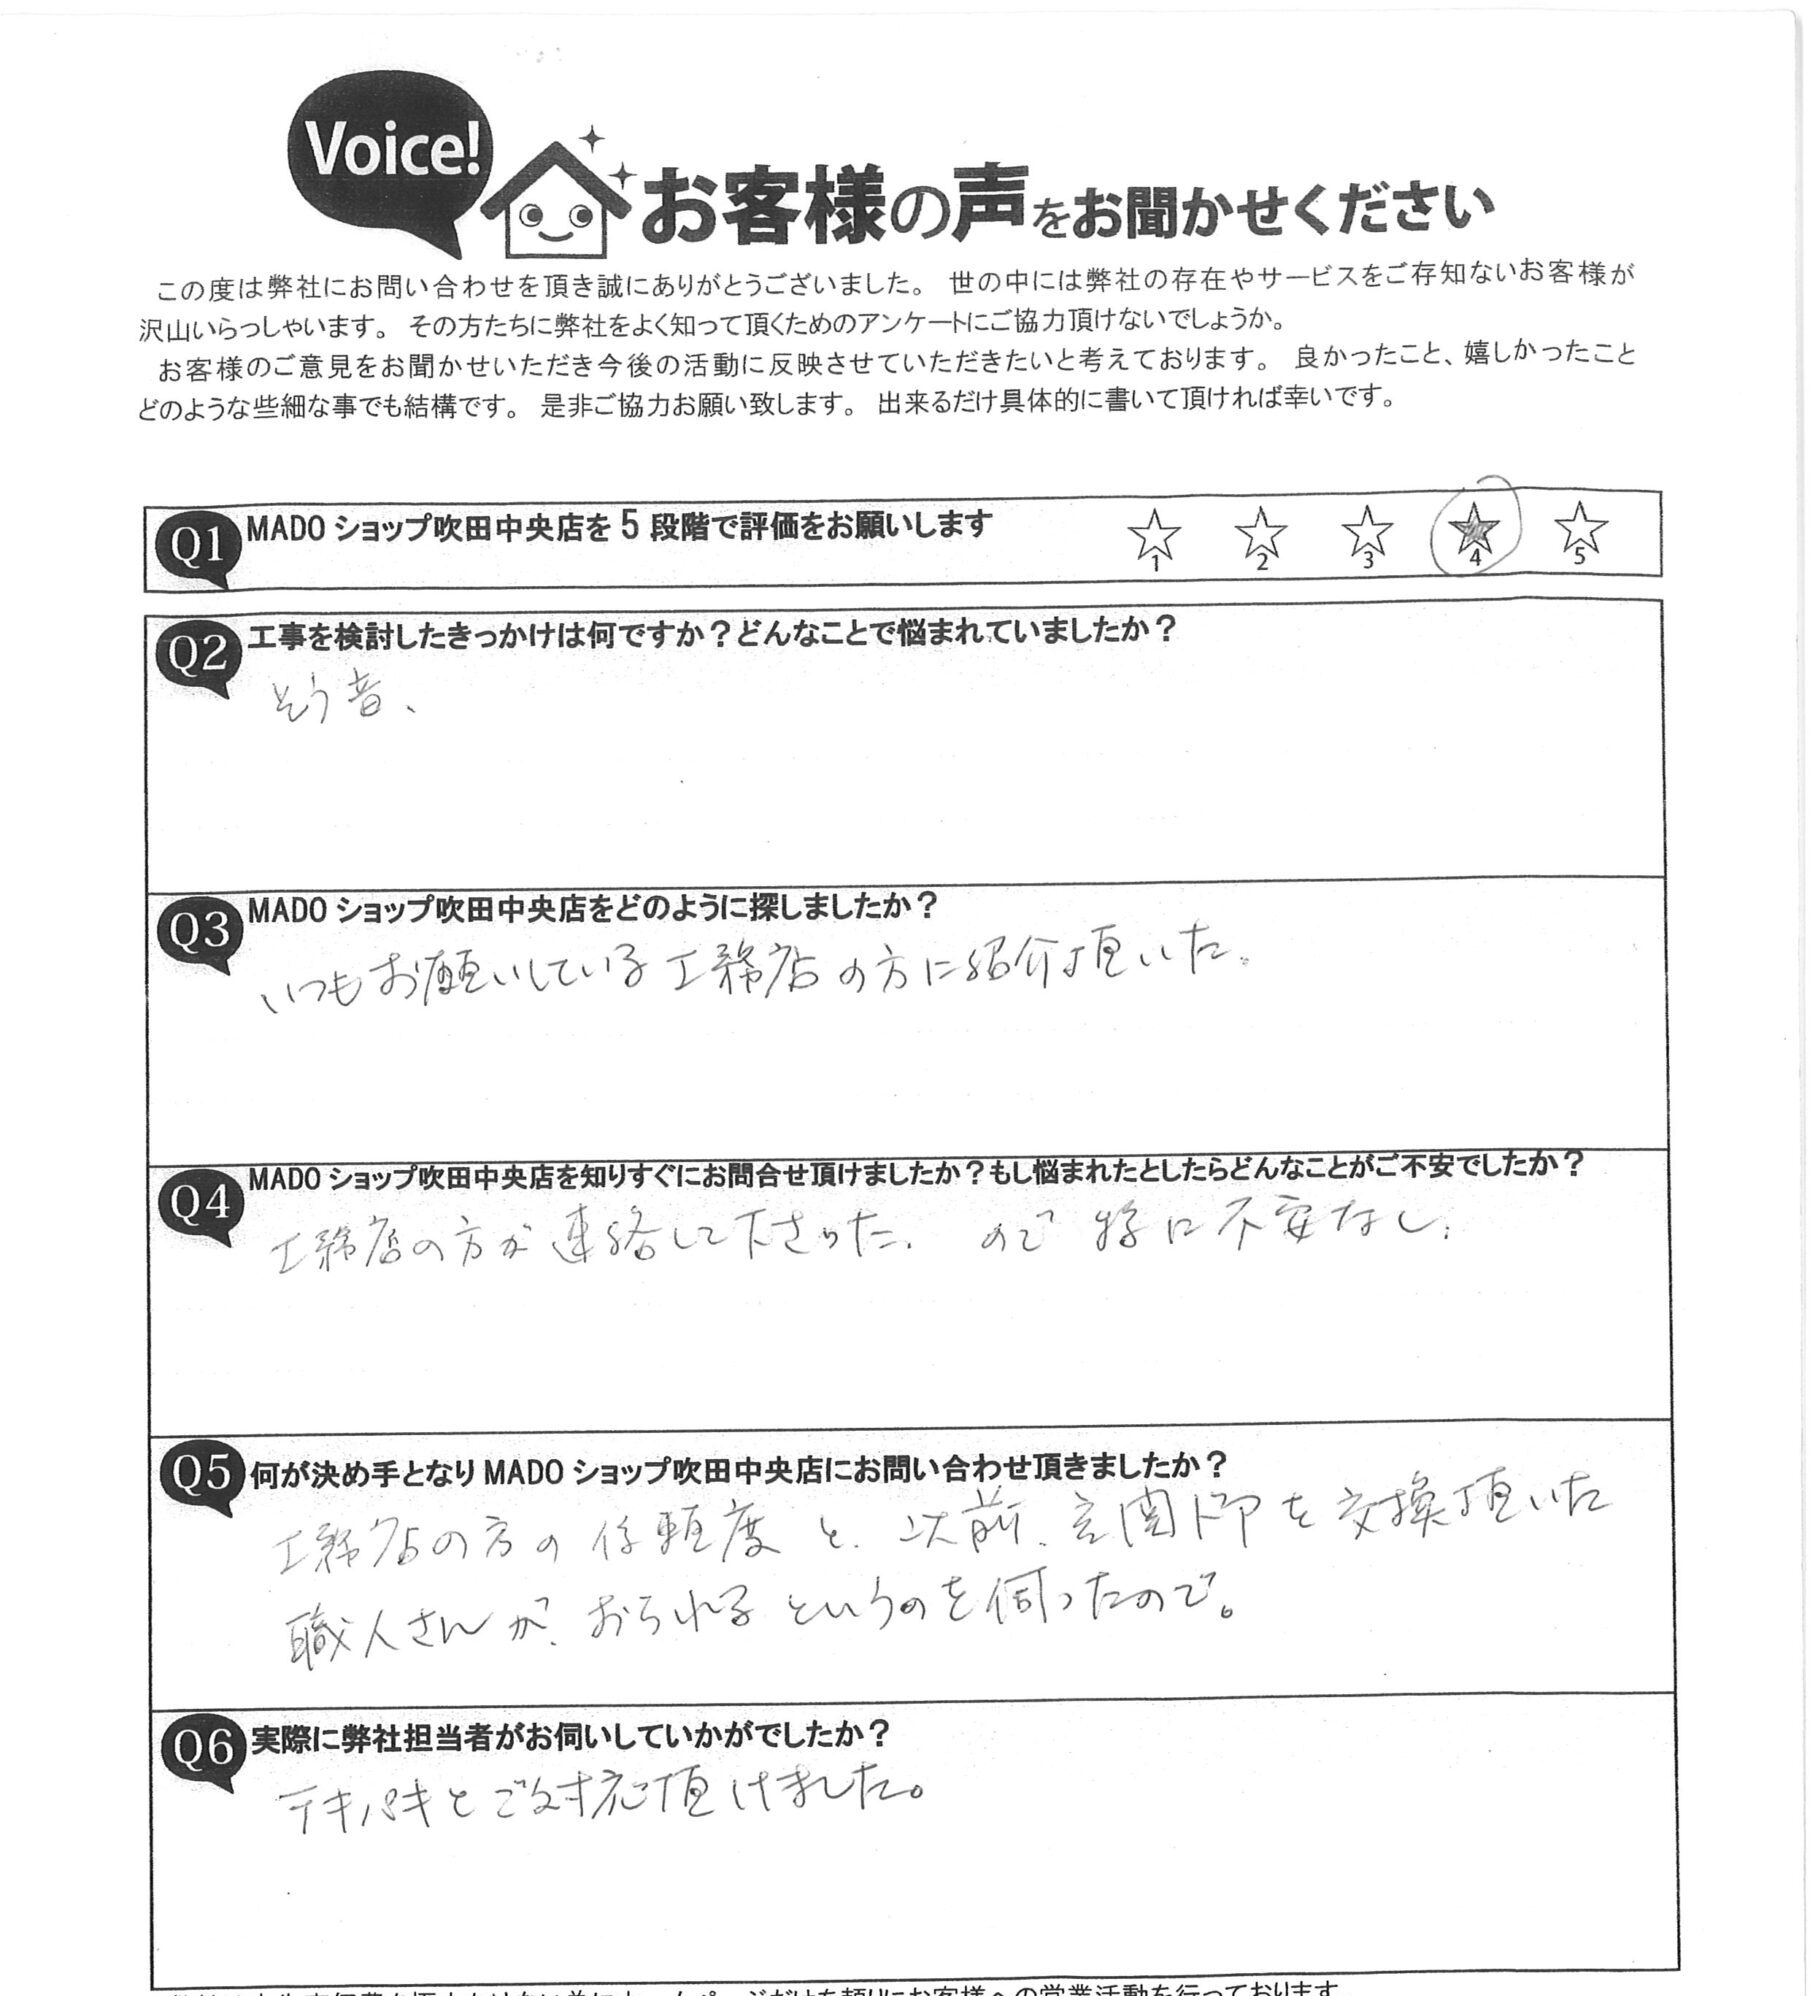 Voice!
お客様の声をお聞かせください
この度は弊社にお問い合わせを頂き誠にありがとうございました。 世の中には弊社の存在やサービスをご存知ないお客様が
沢山いらっしゃいます。 その方たちに弊社をよく知って頂くためのアンケートにご協力頂けないでしょうか。
お客様のご意見をお聞かせいただき今後の活動に反映させていただきたいと考えております。 良かったこと、嬉しかったこと
どのような些細な事でも結構です。 是非ご協力お願い致します。 出来るだけ具体的に書いて頂ければ幸いです。
Q1 MADOショップ吹田中央店を5段階で評価をお願いします
1 2 3 4 5
Q2 工事を検討したきっかけは何ですか？どんなことで悩まれていましたか？
そう音、
Q3 MADOショップ吹田中央店をどのように探しましたか？
いつもお願いしている工務店の方に紹介頂いた。
Q4 MADOショップ吹田中央店を知りすぐにお問合せ頂けましたか？もし悩まれたとしたらどんなことがご不安でしたか？
工務店の方が連絡して下さった、ので特に不安なし、
Q5 何が決め手となりMADOショップ吹田中央店にお問い合わせ頂きましたか？
工務店の方の信頼度と、以前、玄関ドアを交換頂いた
職人さんが、おられるというのを伺ったので。
Q6 実際に弊社担当者がお伺いしていかがでしたか？
テキパキとご対応頂けました。
ホームページだけを頼りにお客様への営業活動を行っております